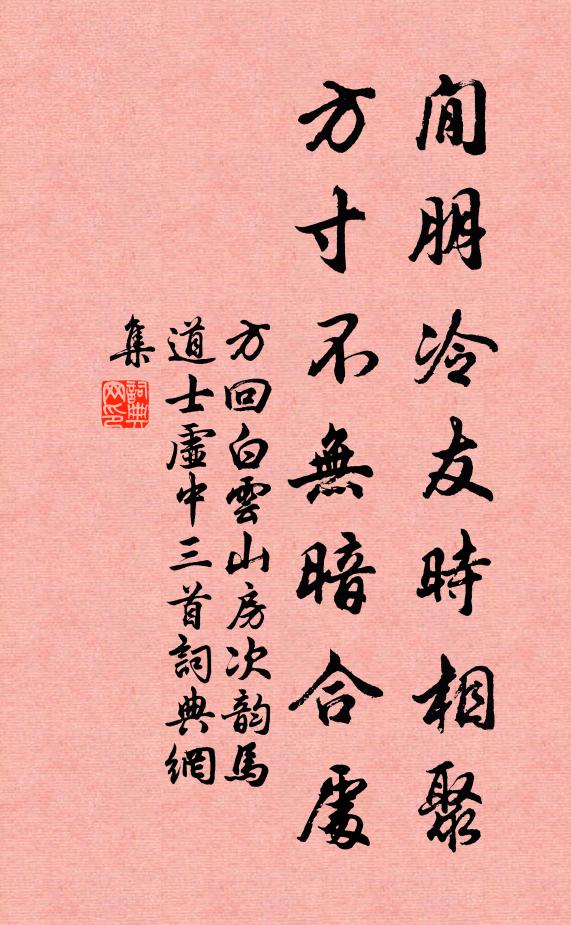 閒朋冷友時相聚
方寸不無暗合處
方回白雲山房次韵馬
道士虛中三首詞典網
集
詞典
网印